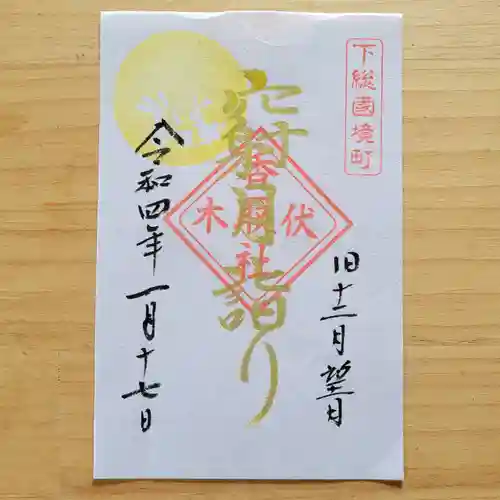 下総國境町
旧十二月望月
伏木
香取社
月詣り
令和四年一月十七日